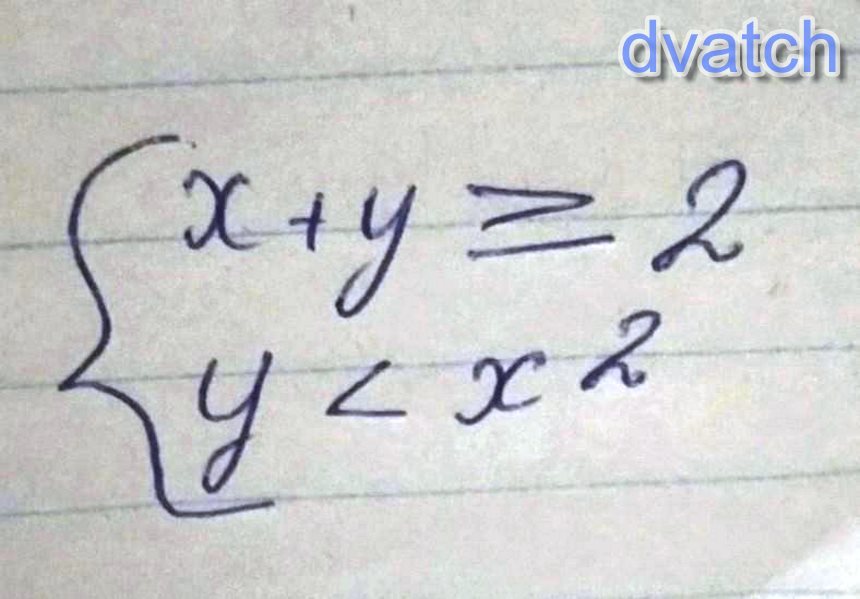 dvatch
x + y ≥ 2
y < x²